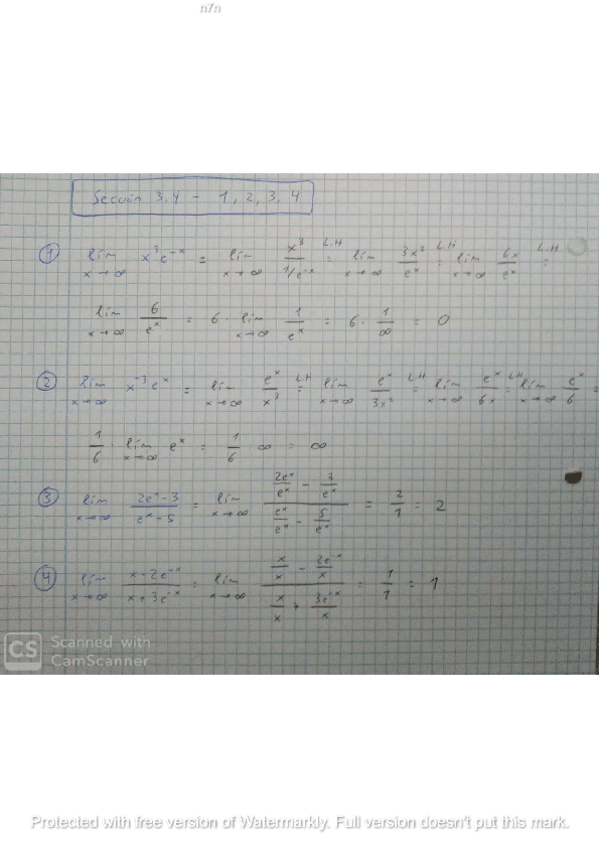 n7n
Secuin 3.4 - 1, 2, 3, 4
① lim x→∞ x³e⁻ˣ = lim x→∞ x³ / 1/e⁻ˣ L.H = lim x→∞ 3x² / eˣ L.H = lim x→∞ 6x / eˣ L.H. =
lim x→∞ 6 / eˣ = 6 · lim x→∞ 1 / eˣ = 6 · 1 / ∞ = 0
② lim x→∞ x⁻³eˣ = lim x→∞ eˣ / x³ = L.H lim x→∞ eˣ / 3x² = L.H lim x→∞ eˣ / 6x = L.H lim x→∞ eˣ / 6 =
1 / 6 · lim x→∞ eˣ = 1 / 6 · ∞ = ∞
③ lim x→∞ 2eˣ-3 / eˣ-5 = lim x→∞ (2eˣ/eˣ - 3/eˣ) / (eˣ/eˣ - 5/eˣ) = 2 / 1 = 2
④ lim x→∞ x-2e⁻ˣ / x+3e⁻ˣ = lim x→∞ (x/x - 2e⁻ˣ/x) / (x/x + 3e⁻ˣ/x) = 1 / 1 = 1
CS Scanned with
CamScanner
Protected with free version of Watermarkly. Full version doesn't put this mark.